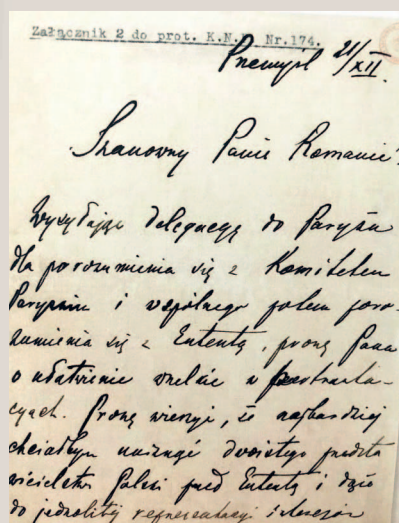 Załącznik 2 do prot. K.N. Nr.174.
Przemyśl 21/XII.
Szanowny Panie Romanie!
Wysyłając delegację do Paryża
dla porozumienia się z Komitetem
Paryskim i wspólnego potem poro-
zumienia się z Ententą, proszę Pana
o ułatwienie wselkie w pertrakta-
cyach. Proszę wierzyć, że najbardziej
chciałbym uniknąć dwoistego przedsta
wicielstwa Polski przed Ententą i dążę
do jednolitej reprezentacji i